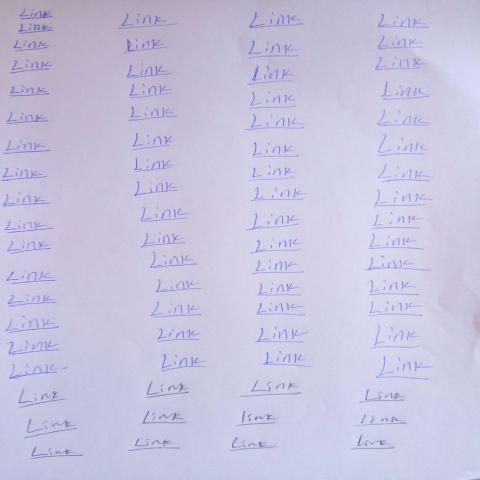 Link Link Link Link
Link
Link Link Link Link
Link Link Link Link
Link Link Link Link
Link Link Link Link
Link Link Link Link
Link Link Link Link
Link Link Link Link
Link Link Link Link
Link Link Link Link
Link Link Link Link
Link Link Link Link
Link Link Link Link
Link Link Link Link
Link Link Link Link
Link Link Link Link
Link Link link link
Link Link Link Link